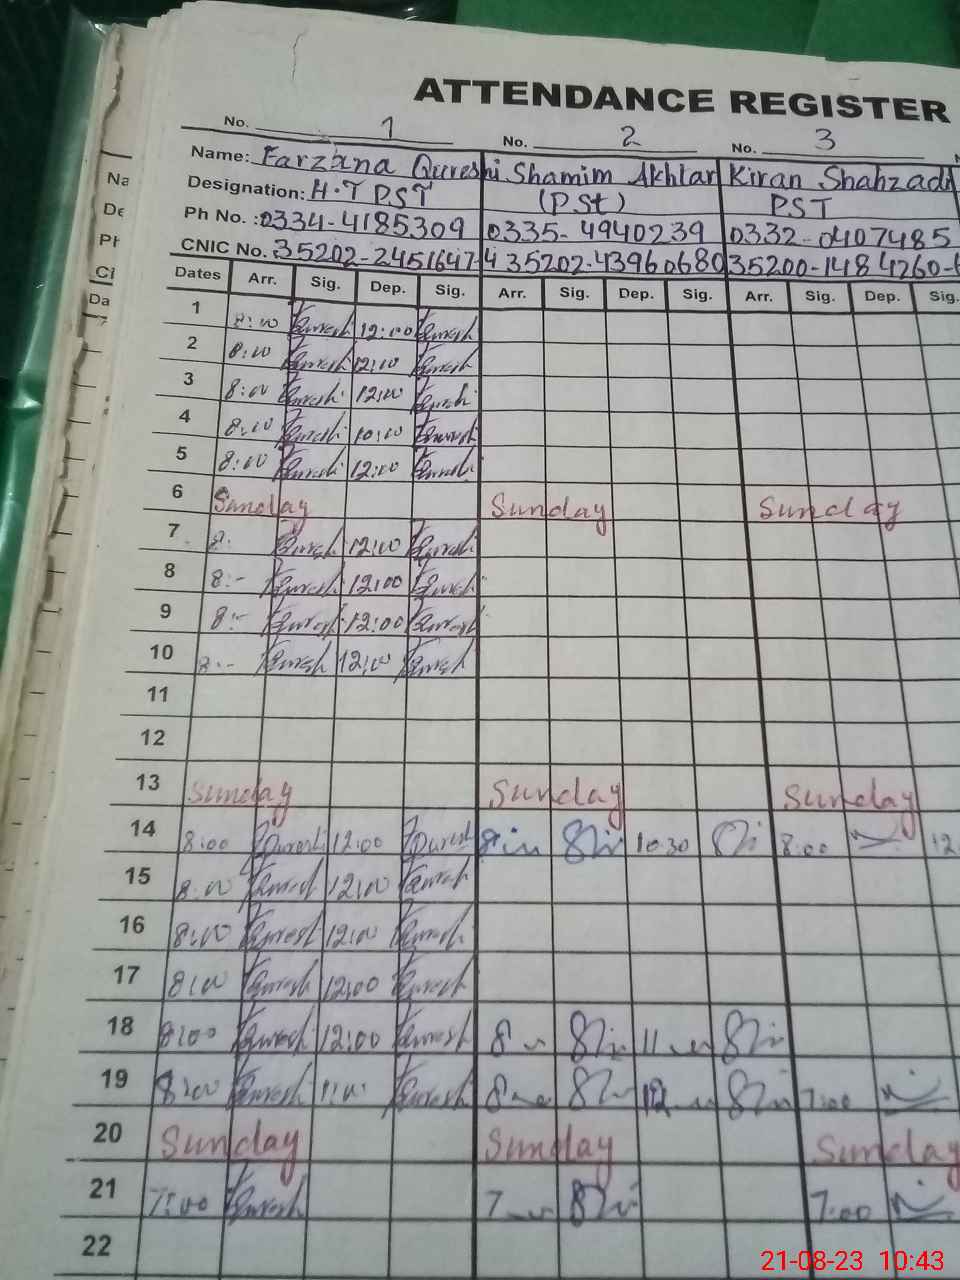 ATTENDANCE REGISTER
No. 1 No. 2 No. 3
Name: Farzana Qureshi Shamim Akhtar Kiran Shahzadi
Designation: H.T PST (PSt) PST
Ph No. : 0334-4185309 0335-4940239 0332-0407485
CNIC No. 35202-2451647-4 35202-43960680 35200-1484260-
Dates Arr. Sig. Dep. Sig. Arr. Sig. Dep. Sig. Arr. Sig. Dep. Sig.
1 8:00 Quresh 12:00 Quresh
2 8:00 Quresh 12:00 Quresh
3 8:00 Quresh 12:00 Quresh
4 8:00 Quresh 10:00 Quresh
5 8:00 Quresh 12:00 Quresh
6 Sunday Sunday Sunday
7 8:- Quresh 12:00 Quresh
8 8:- Quresh 12:00 Quresh
9 8:- Quresh 12:00 Quresh
10 8:- Quresh 12:00 Quresh
11
12
13 Sunday Sunday Sunday
14 8:00 Quresh 12:00 Quresh 10:30 8:00 12
15 8:00 Quresh 12:00 Quresh
16 8:00 Quresh 12:00 Quresh
17 8:00 Quresh 12:00 Quresh
18 8:00 Quresh 12:00 Quresh 8 11
19 8:00 Quresh 11:00 Quresh 8 12 7:00
20 Sunday Sunday Sunday
21 7:00 Quresh 7 7:00
22
21-08-23 10:43